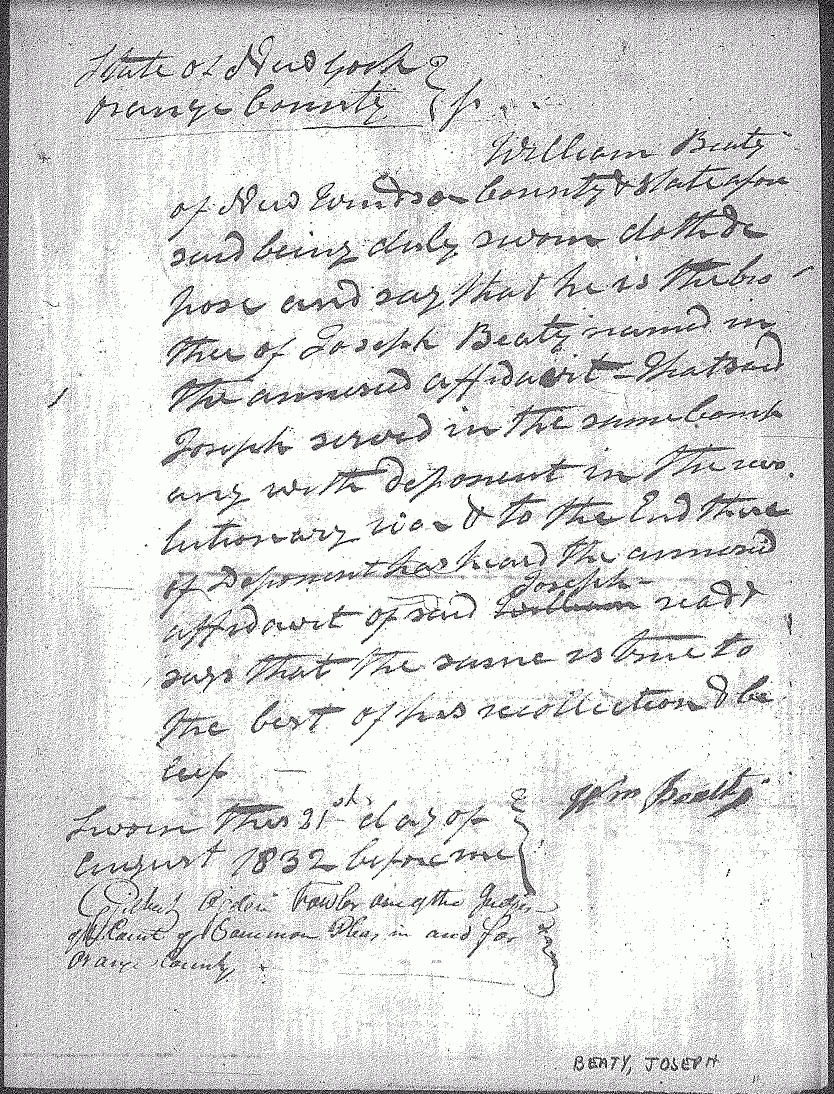 State of New York }
Orange County } ss.
William Beaty
of New Windsor County & State afore
said being duly sworn doth de
pose and say that he is the bro-
ther of Joseph Beaty named in
the annexed affidavit - That said
Joseph served in the same Comp
any with deponent in the revo
lutionary war & to the End there
of Deponent has heard the annexed
Joseph
affidavit of said William read &
says that the same is true to
the best of his recollection & be
lief
Wm Beatty
Sworn this 21st day of
august 1832 before me
Gilbert Fowler one of the Judges
of Court of Common Pleas in and for
Orange County
BEATY, JOSEPH